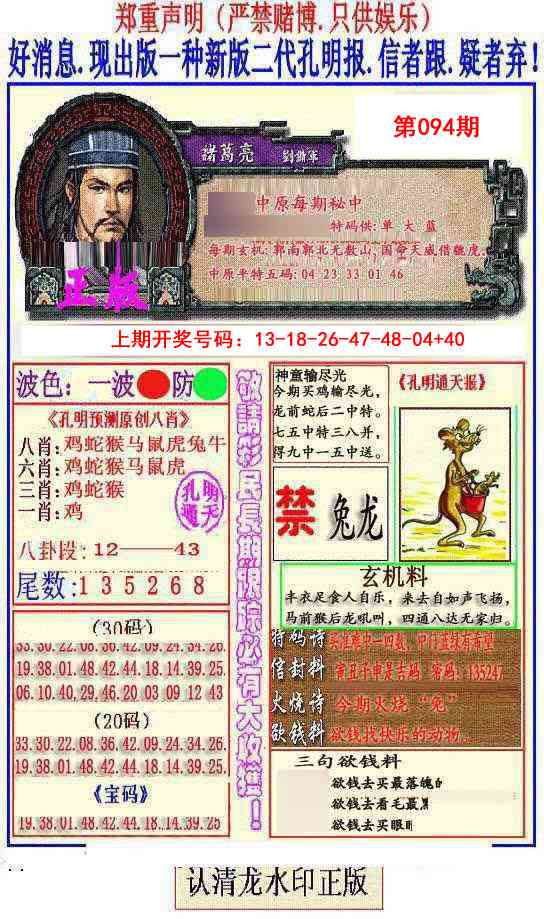 郑重声明（严禁赌博.只供娱乐）
好消息.现出版一种新版二代孔明报.信者跟.疑者弃!
第094期
諸葛亮 劉謝軍
中原每期秘中
特码供:单大蓝
每期玄机:郭南郭北无数山,国命天威借魏虎.
中原平特五码:04 23 33 01 46
正版
上期开奖号码：13-18-26-47-48-04+40
波色：一波 防
《孔明预测原创八肖》
八肖:鸡蛇猴马鼠虎兔牛
六肖:鸡蛇猴马鼠虎
三肖:鸡蛇猴
一肖:鸡
孔明通天
八卦段:12——43
尾数:135268
敬請彩民長期跟踪必有大收獲！
神童输尽光
今期买鸡输尽光，
龙前蛇后二中特。
七五中特三八并，
得九中一五中送。
《孔明通天报》
禁 兔龙
玄机料
丰衣足食人自乐，来去自如声飞扬，
马前猴后龙吼叫，四通八达无家归。
(30码)
33.30.22.08.36.42.09.24.34.26.
19.38.01.48.42.44.18.14.39.25.
06.10.40,29,46.20 03 09 12 43
(20码)
33.30.22.08.36.42.09.24.34.26.
19.38.01.48.42.44.18.14.39.25.
《宝码》
19.38.01.48.42.44.18.14.39.25
特码诗
信封料 寅丑壬申是吉码 密码：135247
火烧诗 今期火烧“兔”
欲钱料 欲钱找快乐的动物..
三句欲钱料
欲钱去买最落魄的
欲钱去看毛最黑
欲钱去买眼
认清龙水印正版